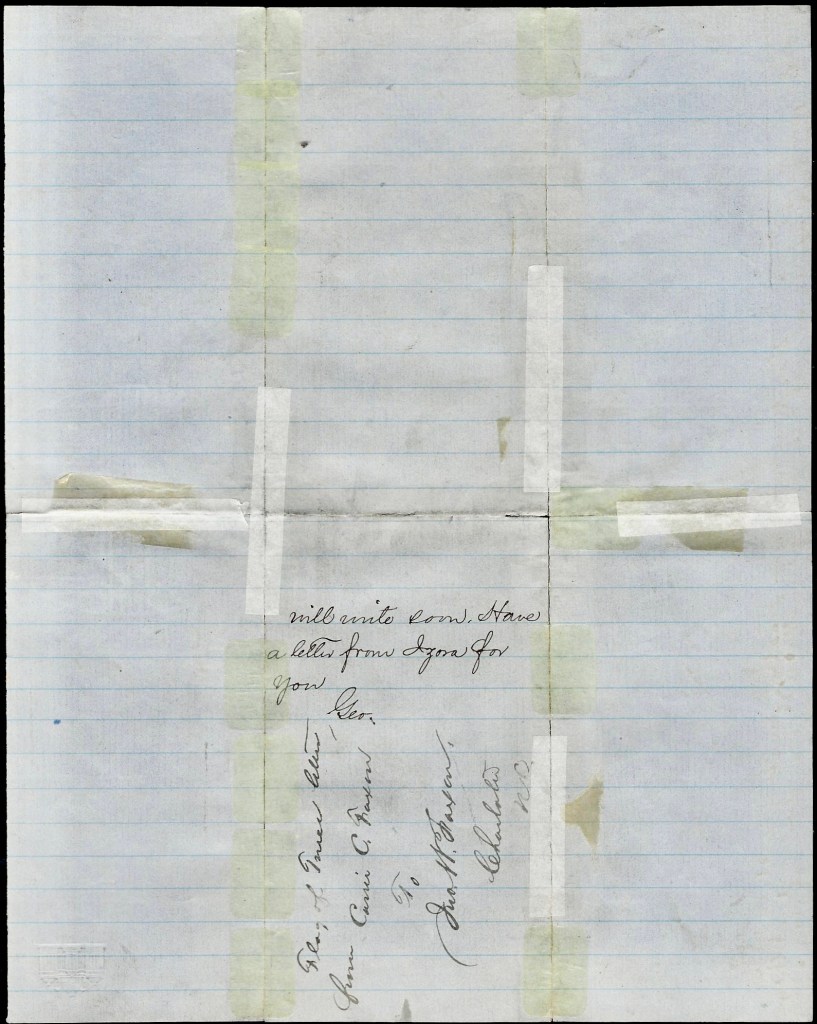 will write soon. Have
a letter from Izora for
you
Geo.
Flag of Truce
from Carrie C. Faxon
To
Jno. W. Faxon,
Charlotte
N.C.